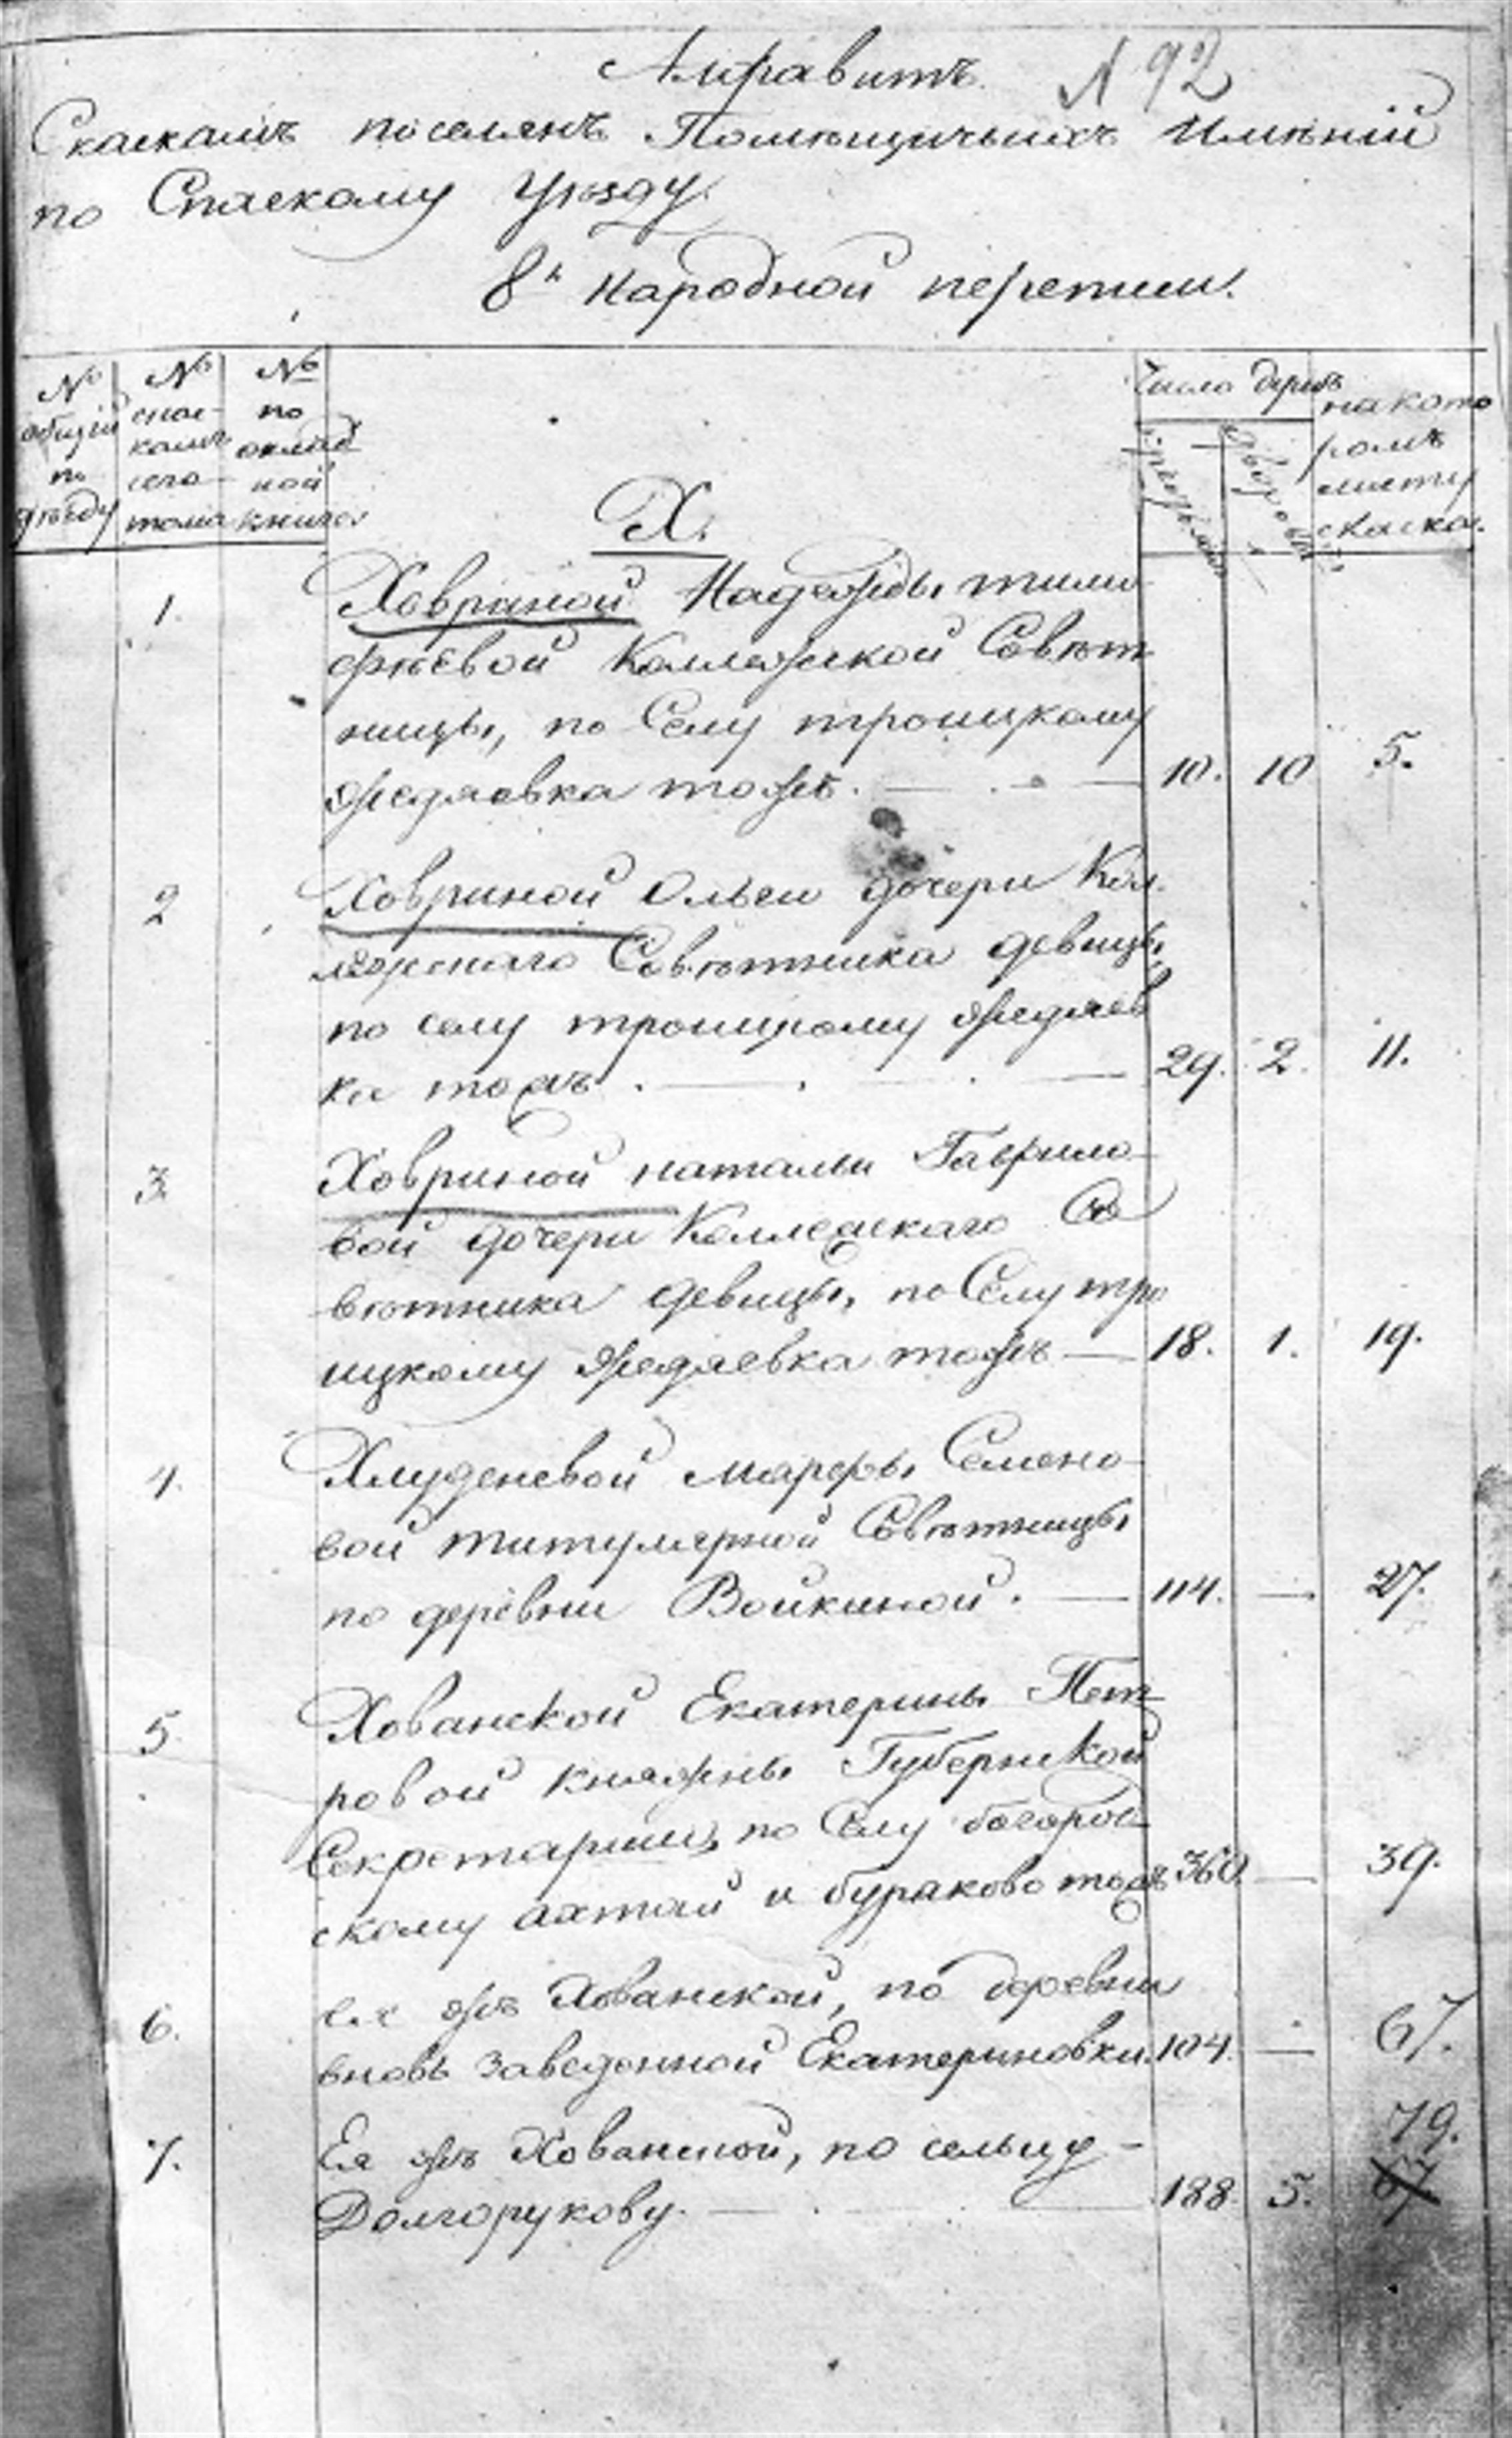 Алфавитъ. N 92
Скаскамъ поселянъ Помѣщичьихъ Имѣній
по Спаскому Уѣзду.
8й Народной переписи.
№ общій по уѣзду
№ скаскамъ сего тома
№ по окладной книге
Число душъ
на которомъ листу скаска.
Х.
1. Ховриной Надежды тимо-
фѣевой Коллежской Совѣт-
ницы, по Селу троицкому
жедяевка тожъ. 10. 10 5.
2 Ховриной Ольги дочери Кол-
лежскаго Совѣтника девицы,
по селу троицкому жедяев
ка тожъ. 29. 2. 11.
3 Ховриной натальи Гаврило-
вой дочери Коллежскаго Со
вѣтника девицы, по Селу тро
ицкому жедяевка тожъ 18. 1. 19.
4. Хлуденевой марфы Семено-
вой титулярной Совѣтницы,
по деревни Войкиной. 114. — 27.
5 Хованской Екатерины Пет-
ровой княжны Губернской
Секретарши, по Селу богород-
скому ахтай и бураково тожъ 360 — 39.
6. ея жъ Хованской, по деревни
вновь заведенной Екатериновки. 104. — 67.
7. Ея жъ Хованской, по сельцу -
Долгорукову. 188. 5. 79.
67